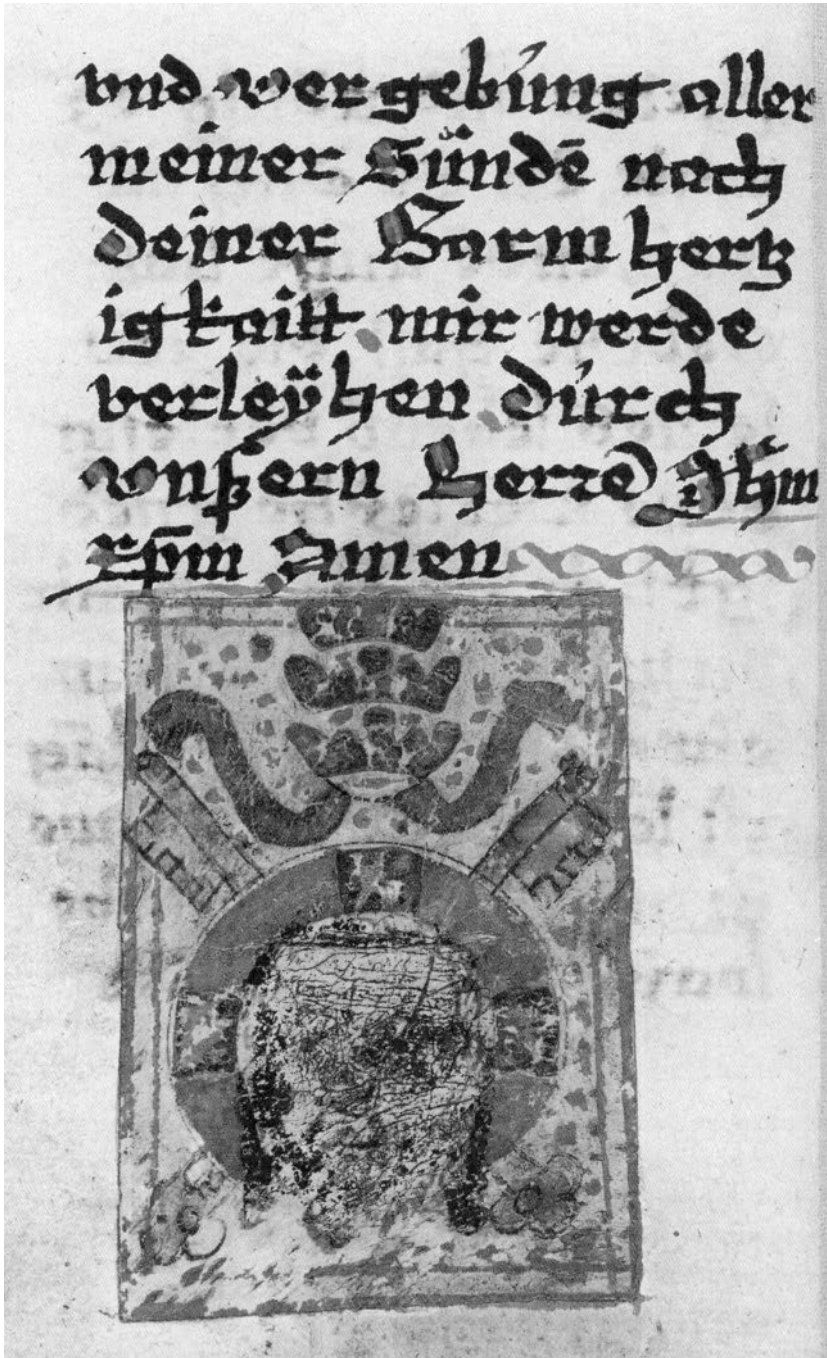 vnd vergebúng aller
meiner Sündē nach
deiner Barmhertz
igkaitt mir werde
verleÿhen dúrch
vnßern Herrē Jh̄m
xp̄m Amen